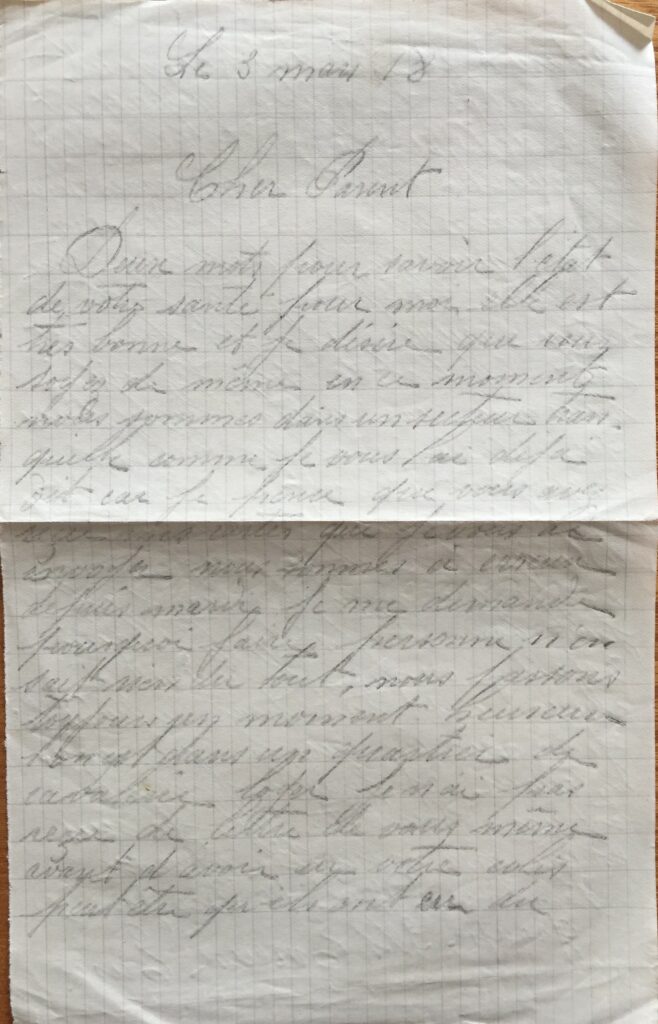 Le 3 mars 18
Cher Parent
Deux mots pour savoir l'état
de votre santé pour moi elle est
très bonne et je désire que vous
soyez de même en ce moment
nous sommes dans un secteur tran
quille comme je vous l'ai déja
dit car je pence que vous avez
que je vous ai
nous sommes à
depuis mardi je me demande
pourquoi faire personne n'en
sait rien du tout, nous passons
toujours un moment heureux
dans un quartier de
cavalerie je n'ai pas
reçu de lettre de vous même
avant d'avoir eu votre colis
peut être qu'ils ont eu du